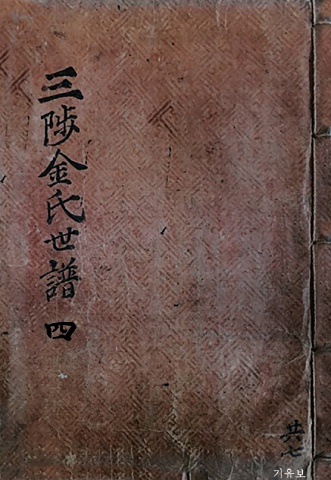 三陟金氏世譜 四
共七
기유보